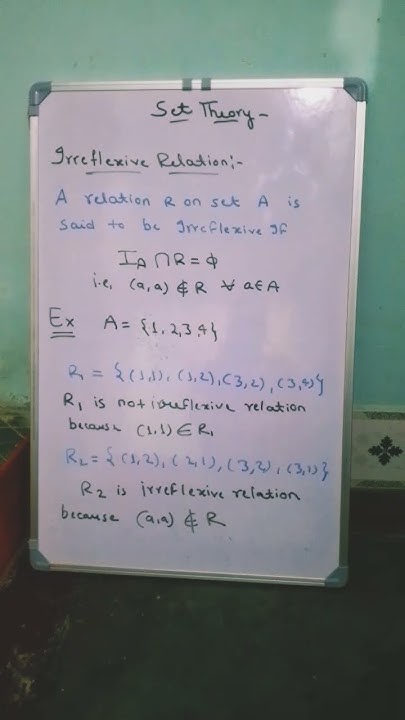 Set Theory-
Irreflexive Relation:-
A relation R on set A is
said to be Irreflexive If
I_A ∩ R = ϕ
i.e, (a,a) ∉ R ∀ a∈A
Ex A = {1,2,3,4}
R₁ = {(1,1), (1,2), (3,2), (3,4)}
R₁ is not irreflexive relation
because (1,1) ∈ R₁
R₂ = {(1,2), (2,1), (3,2), (3,1)}
R₂ is irreflexive relation
because (a,a) ∉ R